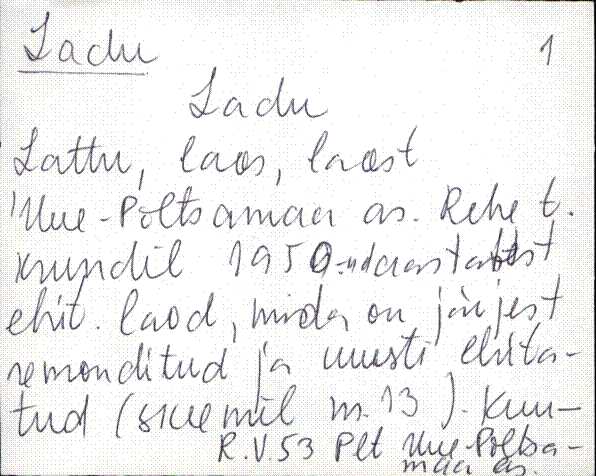 Ladu 1
Ladu
Lattu, laos, laost
'Uue-Põltsamaa as. Rehe t.
krundil 1950-ndaastatest
ehit. laod, mida on järjest
remonditud ja uuesti ehita-
tud (skeemil nr. 13). Kuu-
R.V.53 Plt Uue-Põltsa-
maa as.